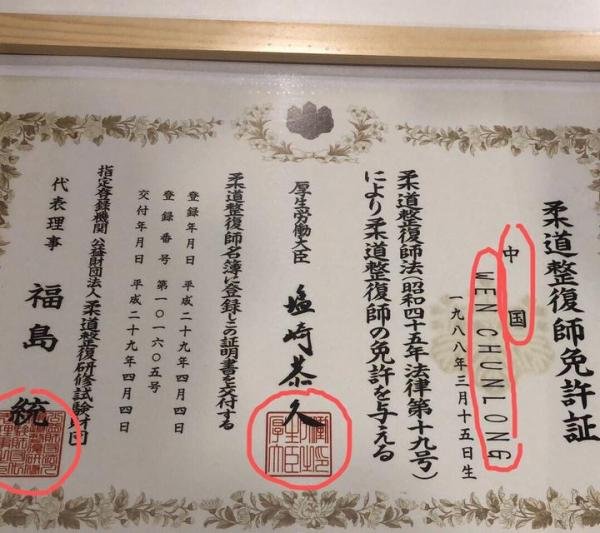 柔道整復師免許証
中国
WEN CHUNLONG
一九八八年三月十五日生
柔道整復師法(昭和四十五年法律第十九号)
により柔道整復師の免許を与える
厚生労働大臣 塩崎恭久
柔道整復師名簿に登録しこの証明書を交付する
登録年月日 平成二十九年四月四日
登録番号 第一〇一六〇五号
交付年月日 平成二十九年四月四日
指定登録機関 公益財団法人柔道整復研修試験財団
代表理事 福島 統